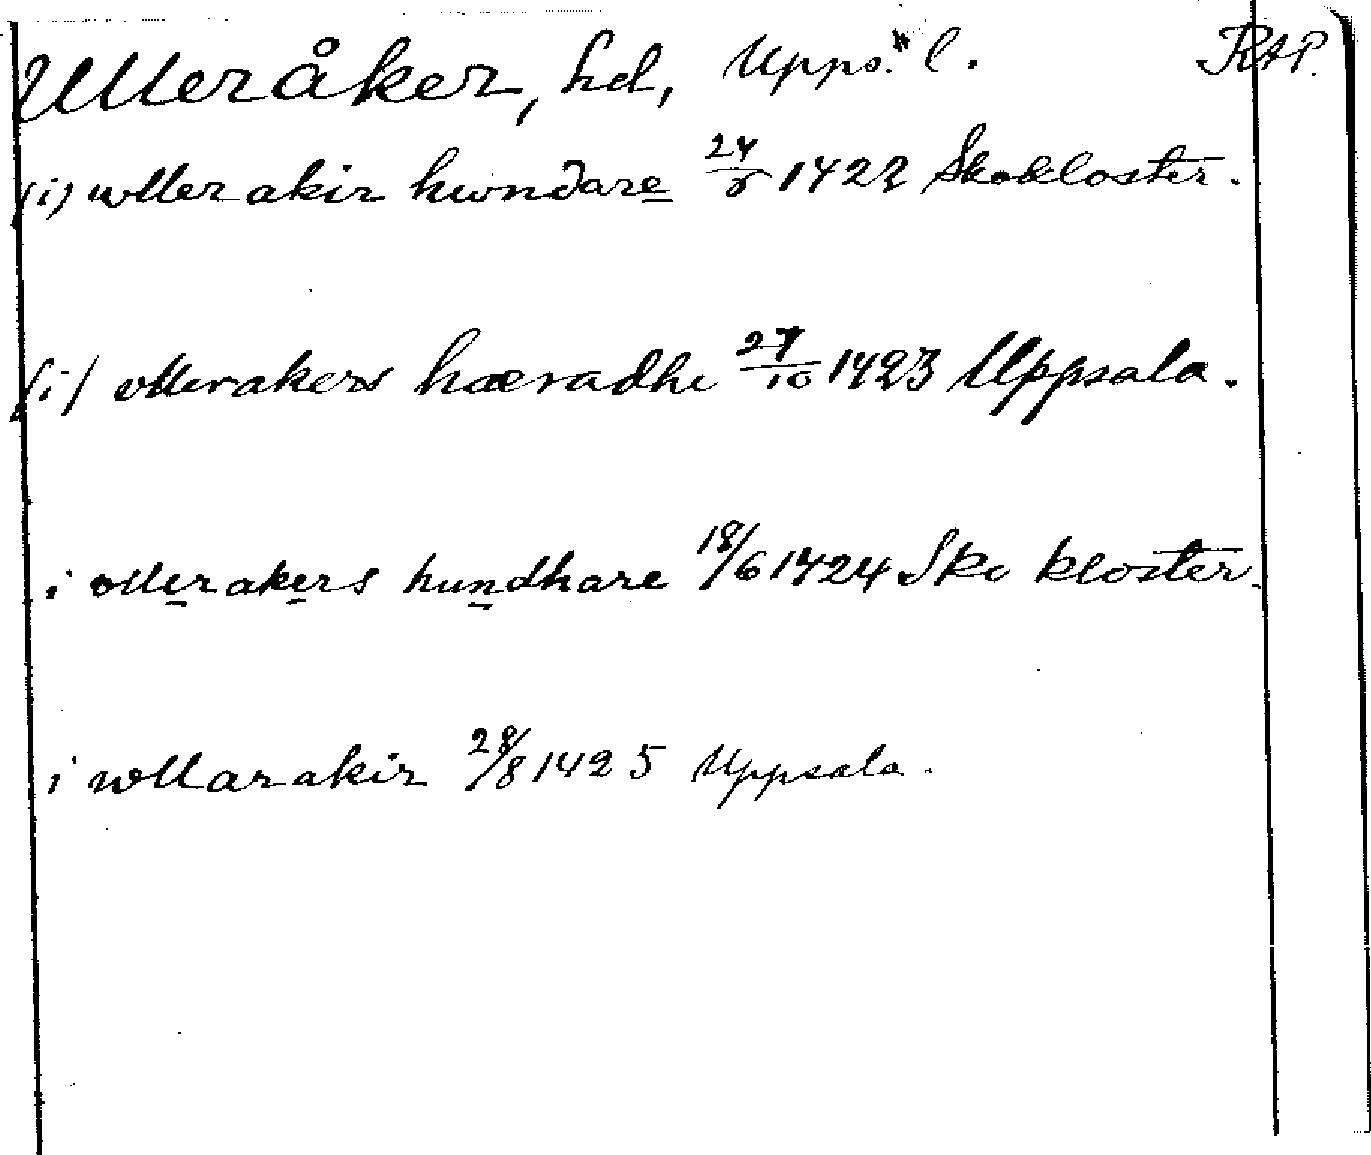 Ulleråker, hd, Upps. l. RAP.
(i) wllerakir hwndare 24/8 1422 Skokloster.
(i) vllerakers hæradhe 27/10 1423 Uppsala.
i vllerakers hundhare 18/6 1424 Sko kloster.
i wllarakir 28/8 1425 Uppsala.